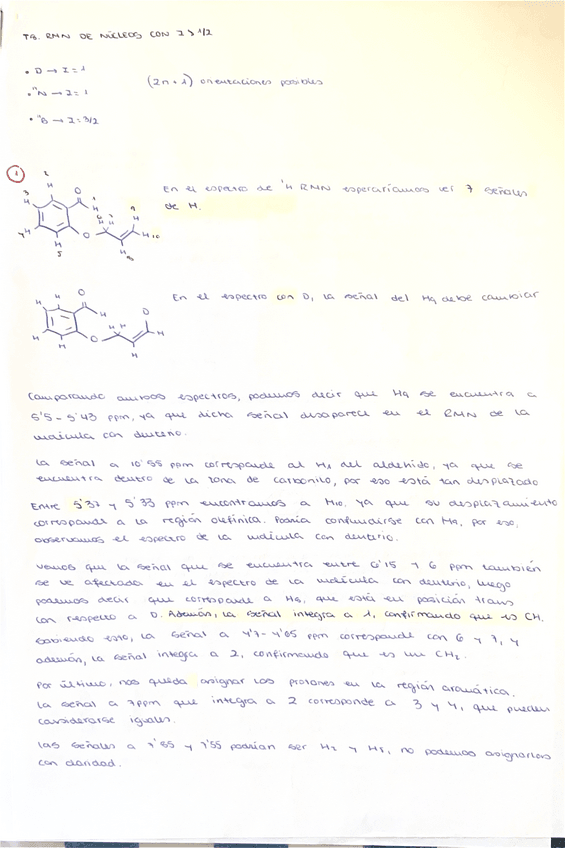 T8. RMN DE NÚCLEOS CON I > 1/2
• D → I = 1
• ¹⁴N → I = 1
(2n + 1) orientaciones posibles
• ¹¹B → I = 3/2
1
En el espectro de ¹H RMN esperaríamos ver 7 señales
de H.
En el espectro con D, la señal del H9 debe cambiar
Comparando ambos espectros, podemos decir que H9 se encuentra a
5'5 - 5'43 ppm, ya que dicha señal desaparece en el RMN de la
molécula con deuterio.
La señal a 10'55 ppm corresponde al H1 del aldehido, ya que se
encuentra dentro de la zona de carbonilo, por eso está tan desplazado
Entre 5'37 y 5'33 ppm encontramos a H10, ya que su desplazamiento
corresponde a la región olefínica. Podría confundirse con H9, por eso,
observamos el espectro de la molécula con deuterio.
Vemos que la señal que se encuentra entre 6'15 y 6 ppm también
se ve afectada en el espectro de la molécula con deuterio, luego
podemos decir que corresponde a H8, que está en posición trans
con respecto a D. Además, la señal integra a 1, confirmando que es CH.
Sabiendo esto, la señal a 4'7 - 4'65 ppm corresponde con 6 y 7, y
además, la señal integra a 2, confirmando que es un CH₂.
Por último, nos queda asignar los protones en la región aromática.
La señal a 7ppm que integra a 2 corresponde a 3 y 4, que pueden
considerarse iguales.
Las señales a 7'85 y 7'55 podrían ser H2 y H5, no podemos asignarlos
con claridad.